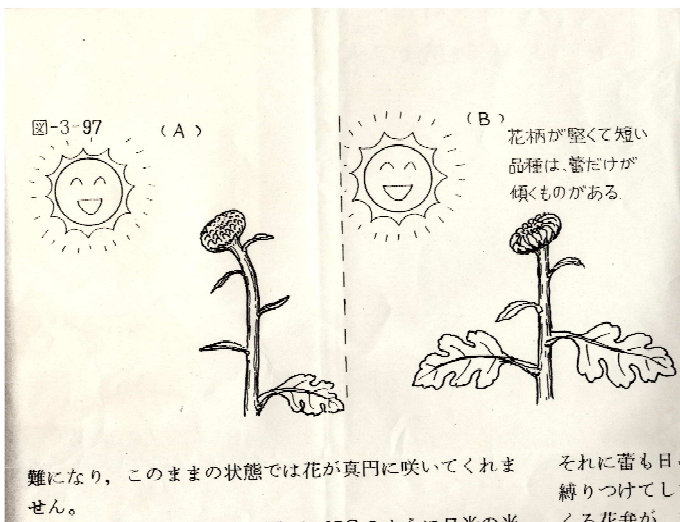 図-3-97
(A)
(B)
花柄が堅くて短い
品種は、蕾だけが
傾くものがある.
難になり，このままの状態では花が真円に咲いてくれま
せん。
それに蕾も日
縛りつけてし